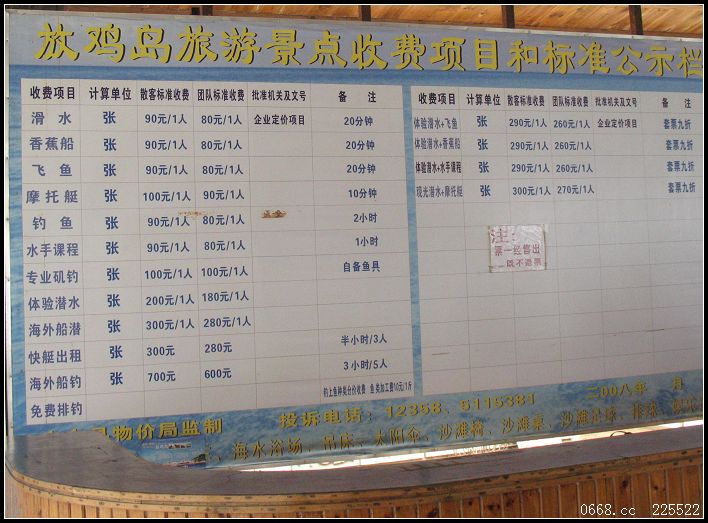 放鸡岛旅游景点收费项目和标准公示栏
收费项目 计算单位 散客标准收费 团队标准收费 批准机关及文号 备 注
滑 水 张 90元/1人 80元/1人 企业定价项目 20分钟
香蕉船 张 90元/1人 80元/1人 20分钟
飞 鱼 张 90元/1人 80元/1人 20分钟
摩托艇 张 100元/1人 90元/1人 10分钟
钓 鱼 张 90元/1人 80元/1人 2小时
水手课程 张 90元/1人 80元/1人 1小时
专业矶钓 张 100元/1人 100元/1人 自备鱼具
体验潜水 张 200元/1人 180元/1人
海外船潜 张 300元/1人 280元/1人
快艇出租 张 300元 280元 半小时/3人
海外船钓 张 700元 600元 3小时/5人
免费排钓 钓上鱼种类台价收费 鱼类加工费10元/1斤
收费项目 计算单位 散客标准收费 团队标准收费 批准机关及文号 备 注
体验潜水+飞鱼 张 290元/1人 260元/1人 企业定价项目 套票九折
体验潜水+香蕉船 张 290元/1人 260元/1人 套票九折
体验潜水+水手课程 张 290元/1人 260元/1人 套票九折
观光潜水+摩托艇 张 300元/1人 270元/1人 套票九折
注:
票一经售出
既不退票
物价局监制 投诉电话:12358、5115381 二00八年 月
、海水浴场、吊床、太阳伞、沙滩椅、沙滩桌、沙滩足球、排球、
0668.cc 225522